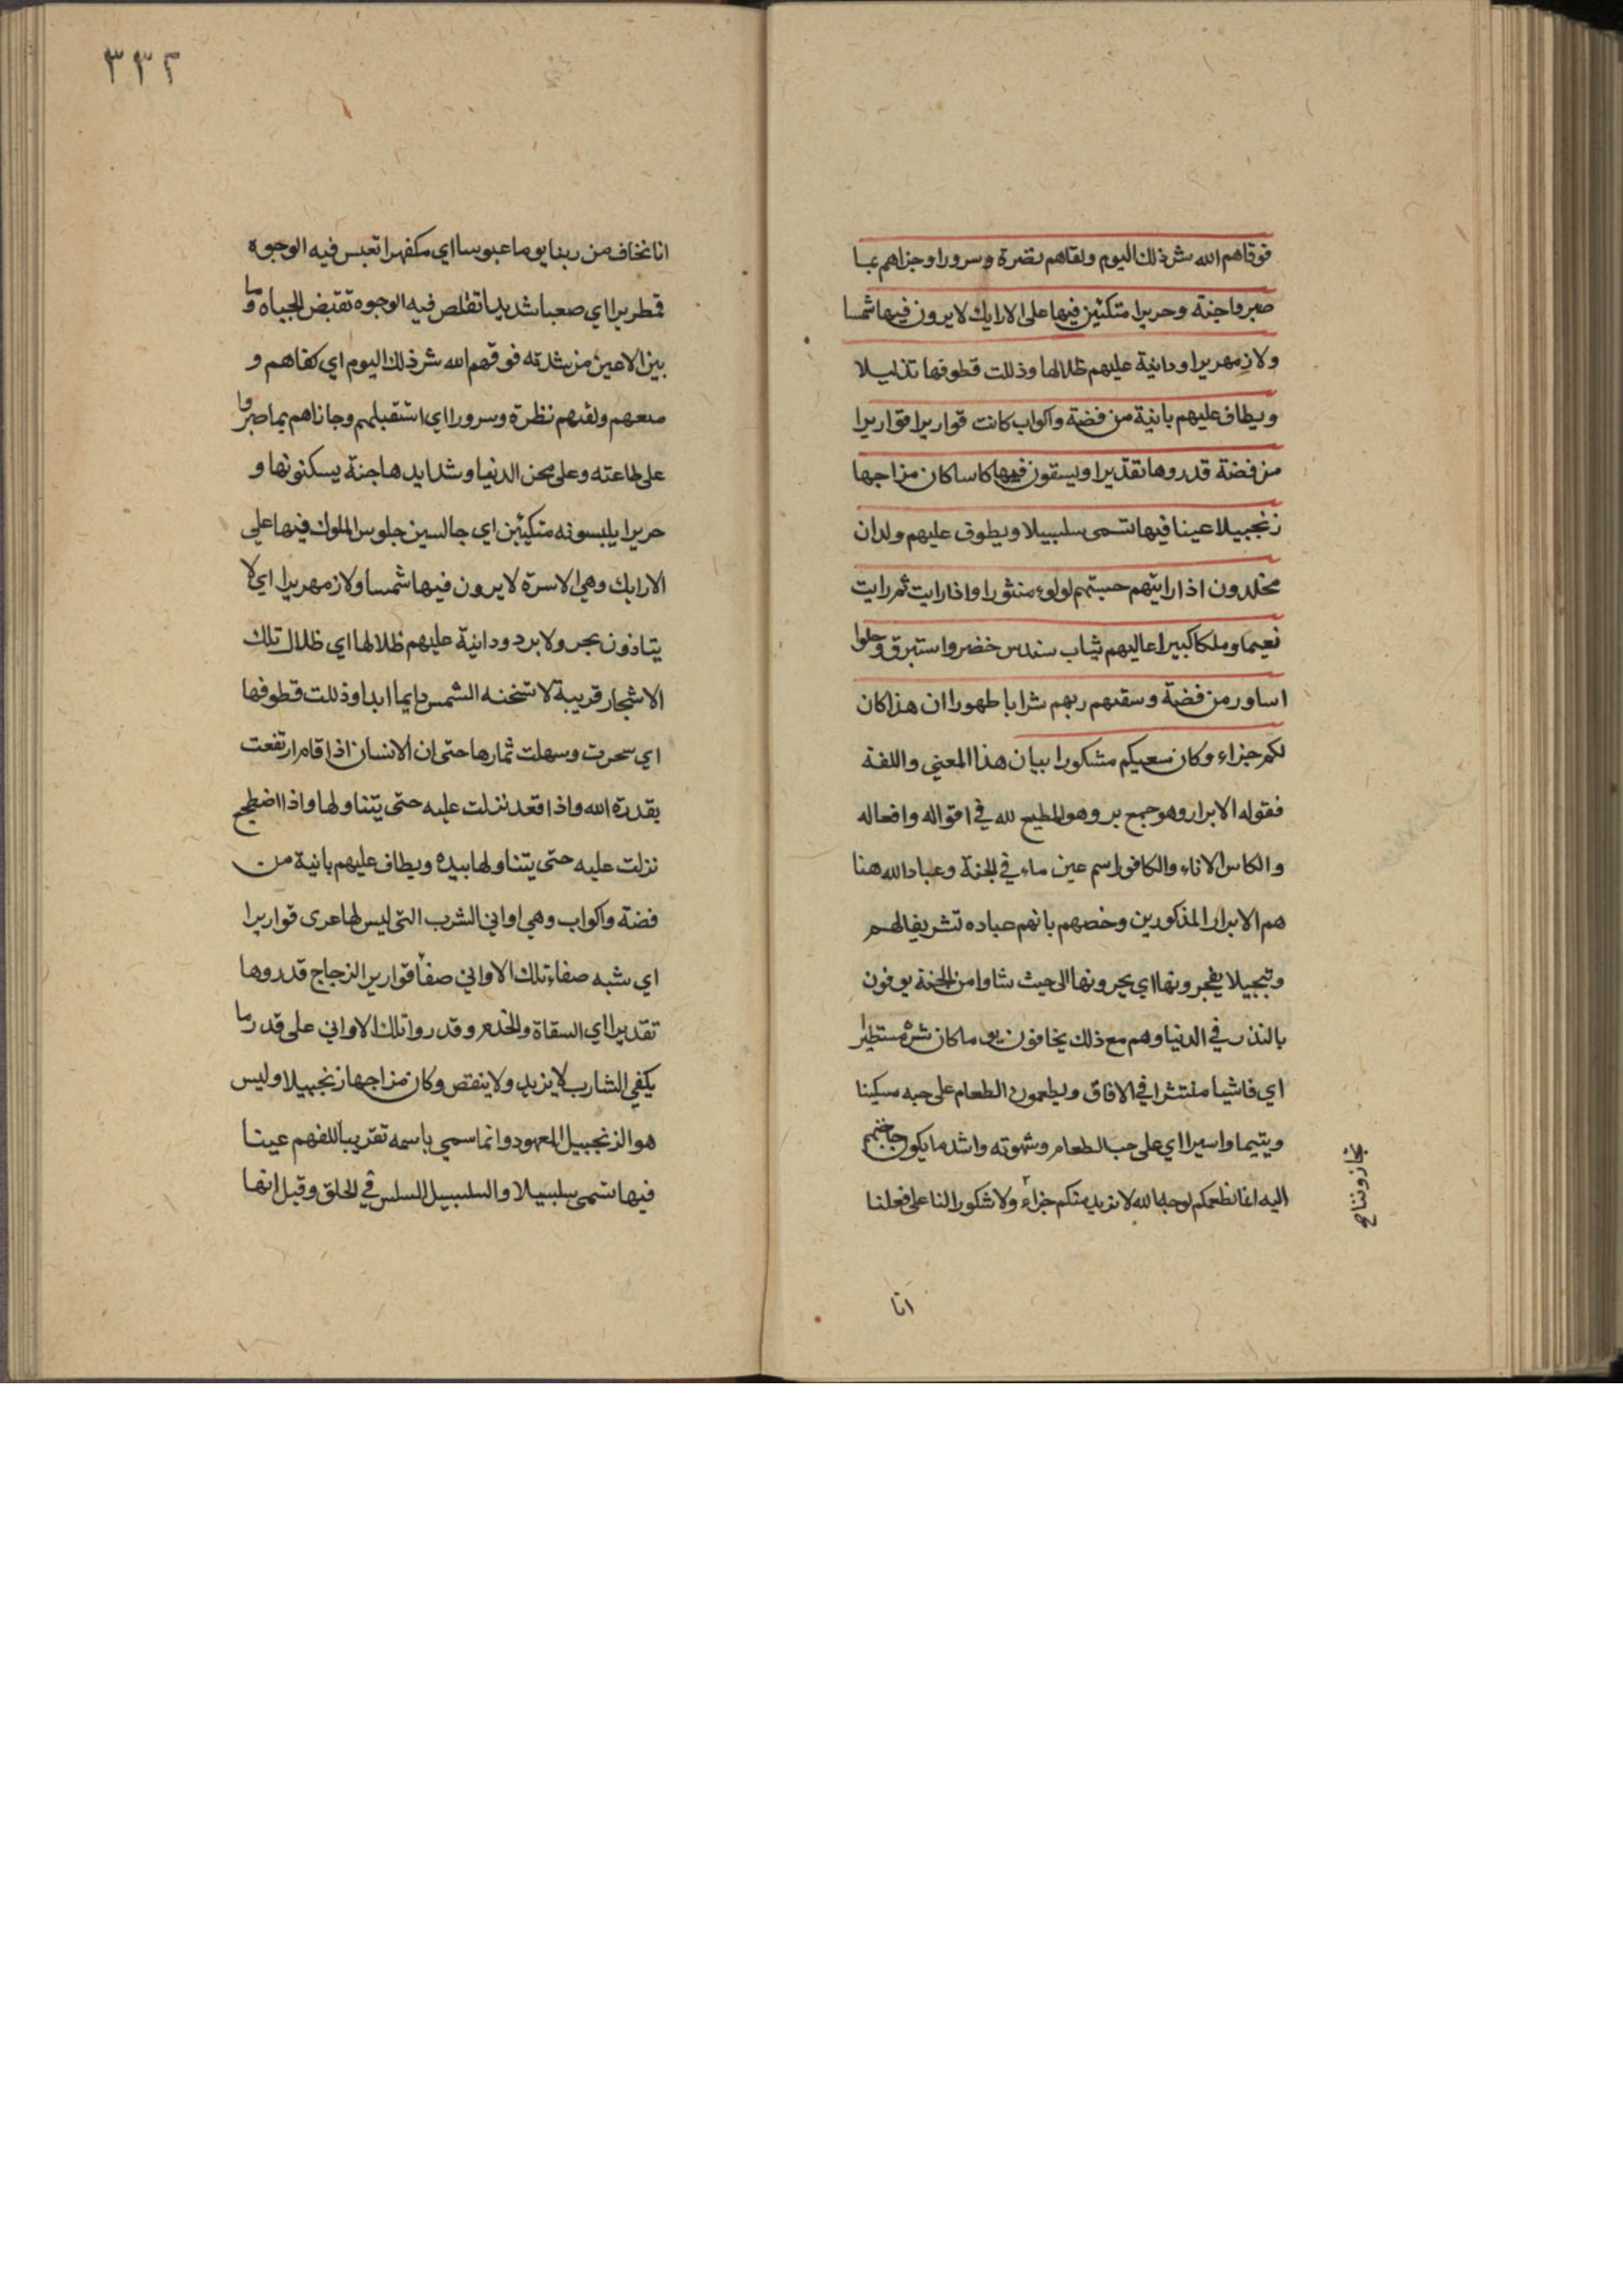 فوقاهم الله شر ذلك اليوم ولقاهم نضرة وسرورا وجزاهم بما
صبروا جنة وحريرا متكئين فيها على الارايك لا يرون فيها شمسا
ولا زمهريرا ودانية عليهم ظلالها وذللت قطوفها تذليلا
ويطاف عليهم بانية من فضة واكواب كانت قواريرا قواريرا
من فضة قدروها تقديرا ويسقون فيها كاسا كان مزاجها
زنجبيلا عينا فيها تسمى سلسبيلا ويطوف عليهم ولدان
مخلدون اذا رايتهم حسبتهم لولوء منثورا واذا رايت ثم رايت
نعيما وملكا كبيرا عاليهم ثياب سندس خضر واستبرق وحلوا
اساور من فضة وسقيهم ربهم شرابا طهورا ان هذا كان
لكم جزاء وكان سعيكم مشكورا بيان هذا المعني واللغة
فقوله الابرار وهو جمع بر وهو المطيع لله في اقواله وافعاله
والكاس الاناء والكافور اسم عين ماء في الجنة وعباد الله هنا
هم الابرار المذكورين وخصهم بانهم عباده تشريفا لهم
وتبجيلا يفجرونها اي يجرونها الى حيث شاوا من الجنة يوفون
بالنذر في الدنيا وهم مع ذلك يخافون يوما كان شره مستطيرا
اي فاشيا منتشرا في الافاق ويطعمون الطعام على حبه مسكينا
ويتيما واسيرا اي على حب الطعام وشهوته واشد ما يكون حاجتهم
اليه انما نطعمكم لوجه الله لا نريد منكم جزاء ولا شكورا لنا على فعلنا
انا
٣٣٢
انا نخاف من ربنا يوما عبوسا اي مكفهرا تعبس فيه الوجوه
قمطريرا اي صعبا شديدا تقلص فيه الوجوه تقتبض الجباه وما
بين الاعين من شدته فوقهم الله شر ذلك اليوم اي كفاهم و
منعهم ولقيهم نظرة وسرورا اي استقبلهم وجازاهم بما صبروا
على طاعته وعلى محن الدنيا وشدايدها جنة يسكنونها و
حريرا يلبسونه متكيئن اي جالسين جلوس الملوك فيها على
الارايك وهي الاسرة لا يرون فيها شمسا ولا زمهريرا اي لا
يتاذون بحر ولا برد ودانية عليهم ظلالها اي ظلال تلك
الاشجار قريبة لا تنخنه الشمس دايما ابدا وذللت قطوفها
اي سخرت وسهلت ثمارها حتى ان الانسان اذا قام ارتفعت
بقدرة الله واذا قعد نزلت عليه حتى يتناولها واذا اضطجع
نزلت عليه حتى يتناولها بيده ويطاف عليهم بانية من
فضة واكواب وهي اواني الشرب التي ليس لها عرى قواريرا
اي شبه صفاء تلك الاواني صفا قوارير الزجاج قدروها
تقديرا اي السقاة والخدم وقدروا تلك الاواني على قدر ما
يكفي الشارب لا يزيد ولا ينقص وكان مزاجها زنجبيلا وليس
هو الزنجبيل المعهود وانما سمي باسمه تقريبا للفهم عينا
فيها تسمى سلسبيلا والسلسبيل السلس في الحلق وقيل انها